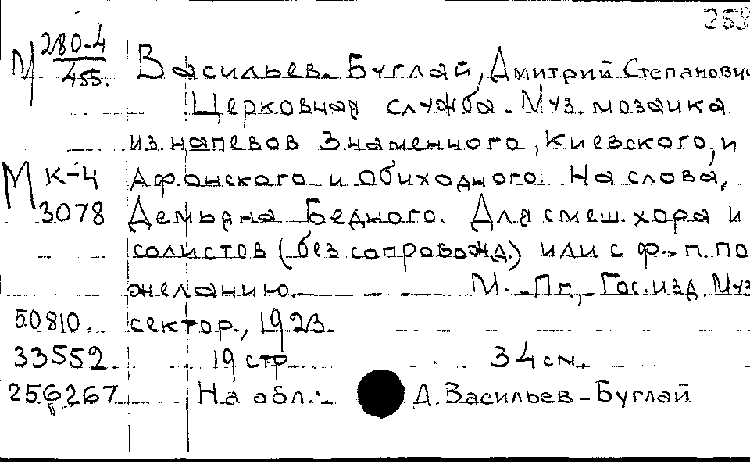 253
М 280-4/455. Васильев-Буглай, Дмитрий Степанови
Церковная служба. Муз. мозаика
из напевов Знаменного, Киевского, и
М К-4 Афонского и Обиходного. На слова,
3078 Демьяна Бедного. Для смеш. хора и
солистов (без сопровожд.) или с ф.-п. по
желанию. М.-Пг., Гос. изд. Муз
50810. сектор., 1923.
33552. 19 стр 34 см.
256267 На обл.: Д. Васильев-Буглай